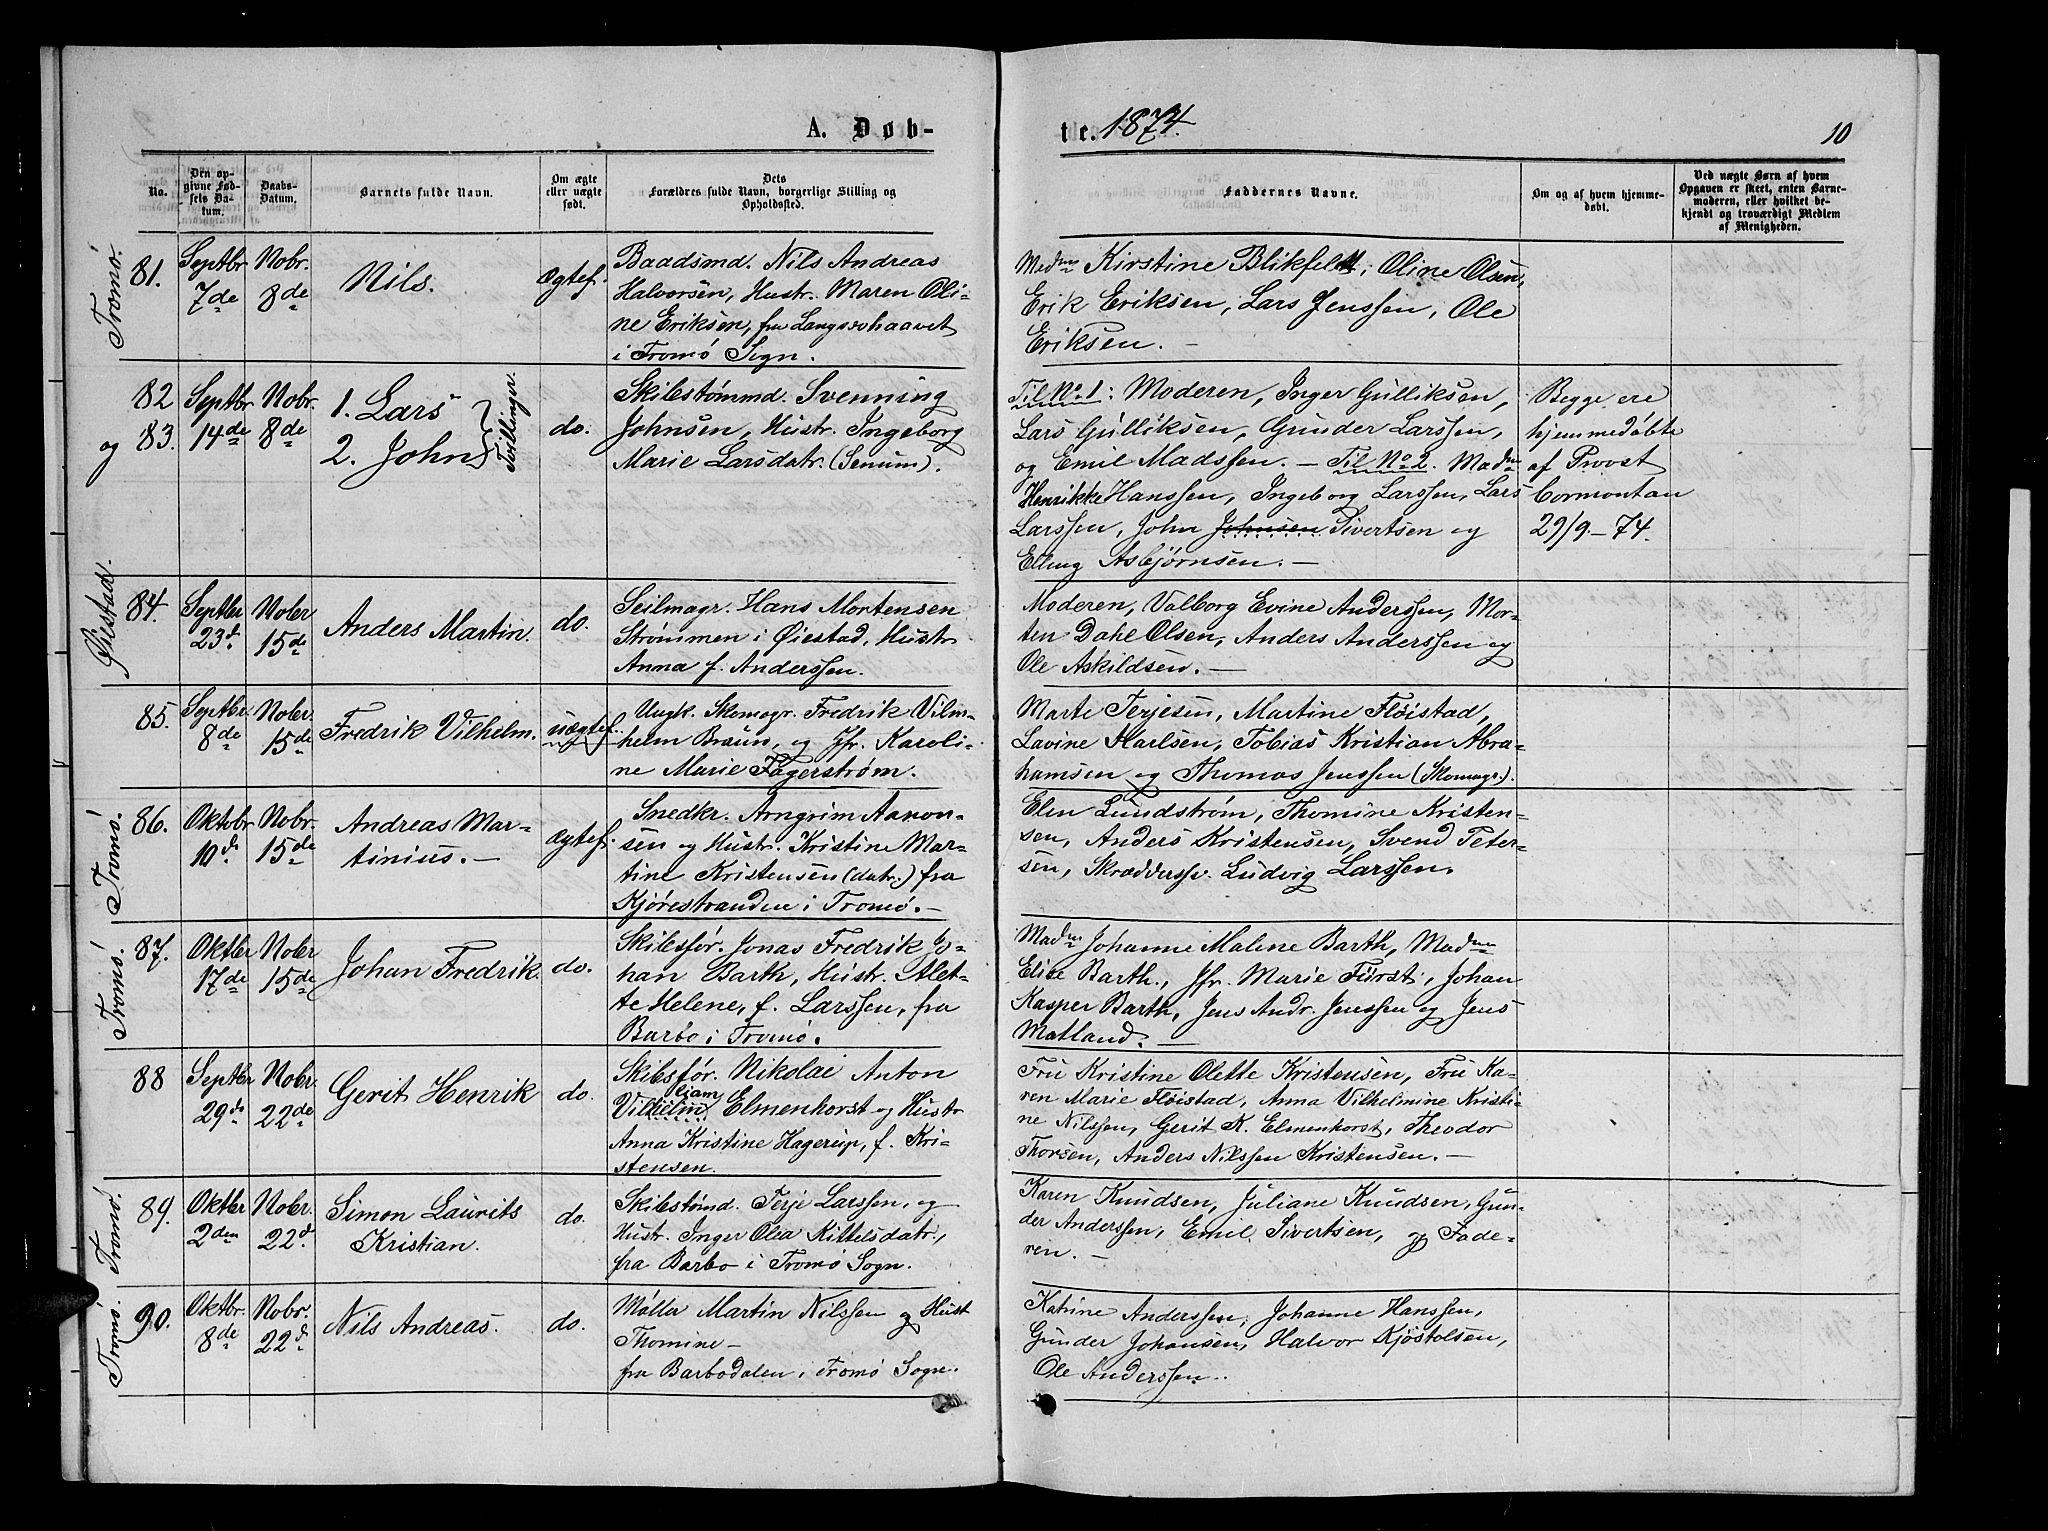 A. Døb-
te. 1874.
10
No.
Den op-
givne Fød-
sels Da-
tum.
Daabs-
Datum.
Barnets fulde Navn.
Om ægte
eller uægte
født.
Dets
Forældres fulde Navn, borgerlige Stilling og
Opholdssted.
Faddernes Navne.
Om og af hvem hjemme-
døbt.
Ved uægte Børn af hvem
Opgaven er skeet, enten Barne-
moderen, eller hvilket be-
kjendt og troværdigt Medlem
af Menigheden.
Tromø.
81.
Septbr.
7de
Nobr.
8de
Nils.
Ægtef.
Baadsmd. Nils Andreas
Halvorsen, Hustr. Maren Oli-
ne Eriksen, fra
i Tromø Sogn.
Madm Kirstine Blikfeldt, Oline Olsen,
Erik Eriksen, Lars Jenssen, Ole
Eriksen. –
82
og 83.
Septbr
14de
Nobr.
8de
1. Lars
2. John
Tvillinger.
do.
Skibstømmd. Svenning
Johnsen, Hustr. Ingeborg
Marie Larsdatr. (Senum).
Til No. 1: Moderen, Inger Gulliksen,
Lars Gulliksen, Gunder Larssen,
og Emil Madssen. – Til No 2. Madm
Henrikke Hanssen, Ingeborg Larssen, Lars
Larssen, John Johnsen Sivertsen og
Elling Asbjørnsen. –
Begge ere
hjemmedøbte
af Provst
Cormontan
29/9 – 74.
Øiestad.
84.
Septbr
23d.
Nobr
15de
Anders Martin.
do.
Seilmagr. Hans Mortensen
Strømmen i Øiestad, Hustr
Anna f. Anderssen.
Moderen, Valborg Evine Anderssen, Mor-
ten Dahl Olsen, Anders Anderssen og
Ole Askildsen. –
85.
Septbr.
8de
Nobr.
15de
Fredrik Vilhelm.
uægtef.
Ungk. Skomagr. Fredrik Vil-
helm Braun, og Jfr. Karoli-
ne Marie Fagerstrøm.
Marte Terjesen, Martine Fløistad,
Lavine Karlsen, Tobias Kristian Abra-
hamsen og Thomas Jenssen (Skomagr.).
Tromø.
86.
Oktobr
10d.
Nobr.
15de
Andreas Mar-
tinius. –
Ægtef.
Snedkr. Arngrim Aanon-
sen og Hustr. Kristine Mar-
tine Kristensen (datr.) fra
Kjørestranden i Tromø. –
Elen Lundstrøm, Thomine Kristen-
sen, Anders Kristensen, Svend Peter-
sen, Skræddersv. Ludvig Larssen.
Tromø.
87.
Oktbr
17de
Nobr
15de
Johan Fredrik.
do.
Skibsfør. Jonas Fredrik Jo-
han Barth, Hustr. Alet-
te Helene, f. Larssen, fra
Barbo i Tromø.
Madm Johanne Malene Barth, Madm
Elise Barth., Jfr. Marie Fürst, Johan
Kasper Barth, Jens Andr. Jenssen og Jens
Matland. –
88
Septbr
29d.
Nobr.
22de
Gerit Henrik
do.
Skibsfør. Nikolai Anton
liam
Vilhelm Elmenhorst og Hustr
Anna Kristine Hagerup, f. Kri-
stensen.
Fru Kristine Olette Kristensen, Fru Ka-
ren Marie Fløistad, Anna Vilhelmine Kristi-
ne Nilssen, Gerit K. Elmenhorst, Theodor
Thorsen, Anders Nilssen Kristensen. –
Tromø.
89.
Oktbr
2den
Nobr.
22d.
Simon Laurits
Kristian.
do.
Skibstømd. Terje Larssen, og
Hustr. Inger Olea Kittelsdatr.,
fra Barbo i Tromø Sogn.
Karen Knudsen, Juliane Knudsen, Gun-
der Anderssen, Emil Sivertsen, og Fade-
ren. –
Tromø.
90.
Oktbr.
8de
Nobr.
22d
Nils Andreas.
do.
Møller Martin Nilssen og Hust
Thomine –
fra Barbodalen i Tromø Sogn.
Katrine Anderssen, Johanne Hanssen,
Gunder Johansen, Halvor Kjøstolsen,
Ole Anderssen.